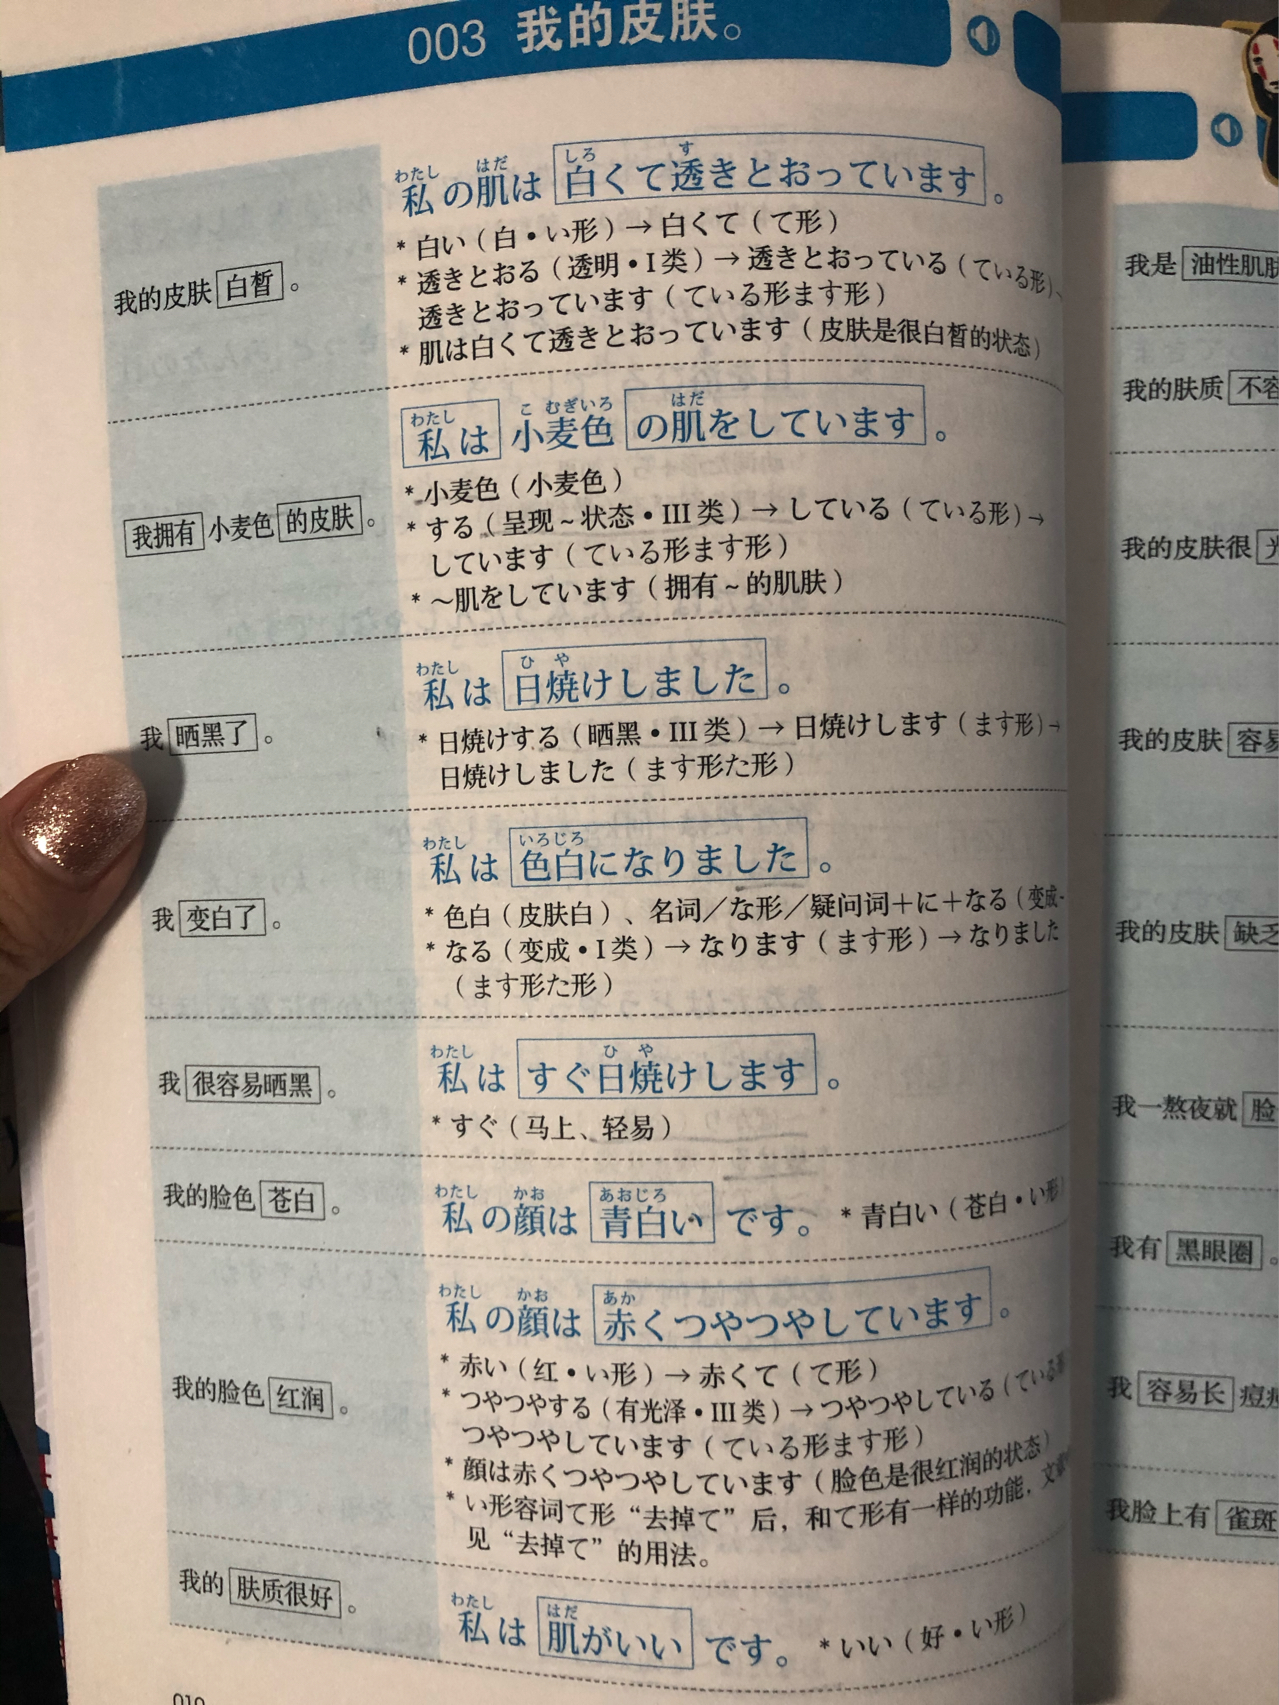 003 我的皮肤。
我的皮肤 白皙 。
わたし はだ しろ す
私の肌は 白くて透きとおっています 。
* 白い（白・い形）→ 白くて（て形）
* 透きとおる（透明・I类）→ 透きとおっている（ている形）、
透きとおっています（ている形ます形）
* 肌は白くて透きとおっています（皮肤是很白皙的状态）
我拥有 小麦色 的皮肤 。
わたし こ むぎいろ はだ
私は 小麦色 の肌をしています 。
* 小麦色（小麦色）
* する（呈现~状态・III类）→ している（ている形）→
しています（ている形ます形）
* ～肌をしています（拥有~的肌肤）
我 晒黑了 。
わたし ひ や
私は 日焼けしました 。
* 日焼けする（晒黑・III类）→ 日焼けします（ます形）→
日焼けしました（ます形た形）
我 变白了 。
わたし いろじろ
私は 色白になりました 。
* 色白（皮肤白）、名词／な形／疑问词＋に＋なる（变成
* なる（变成・I类）→ なります（ます形）→ なりました
（ます形た形）
我 很容易晒黑 。
わたし ひ や
私は すぐ日焼けします 。
* すぐ（马上、轻易）
我的脸色 苍白 。
わたし かお あおじろ
私の顔は 青白い です。 * 青白い（苍白・い形）
我的脸色 红润 。
わたし かお あか
私の顔は 赤くつやつやしています 。
* 赤い（红・い形）→ 赤くて（て形）
* つやつやする（有光泽・III类）→ つやつやしている（ている
つやつやしています（ている形ます形）
* 顔は赤くつやつやしています（脸色是很红润的状态）
* い形容词て形“去掉て”后，和て形有一样的功能，
见“去掉て”的用法。
我的 肤质很好 。
わたし はだ
私は 肌がいい です。 * いい（好・い形）
010
我是 油性肌肤
我的肤质 不容
我的皮肤很
我的皮肤 容易
我的皮肤 缺乏
我一熬夜就 脸
我有 黑眼圈 。
我 容易长 痘痘
我脸上有 雀斑